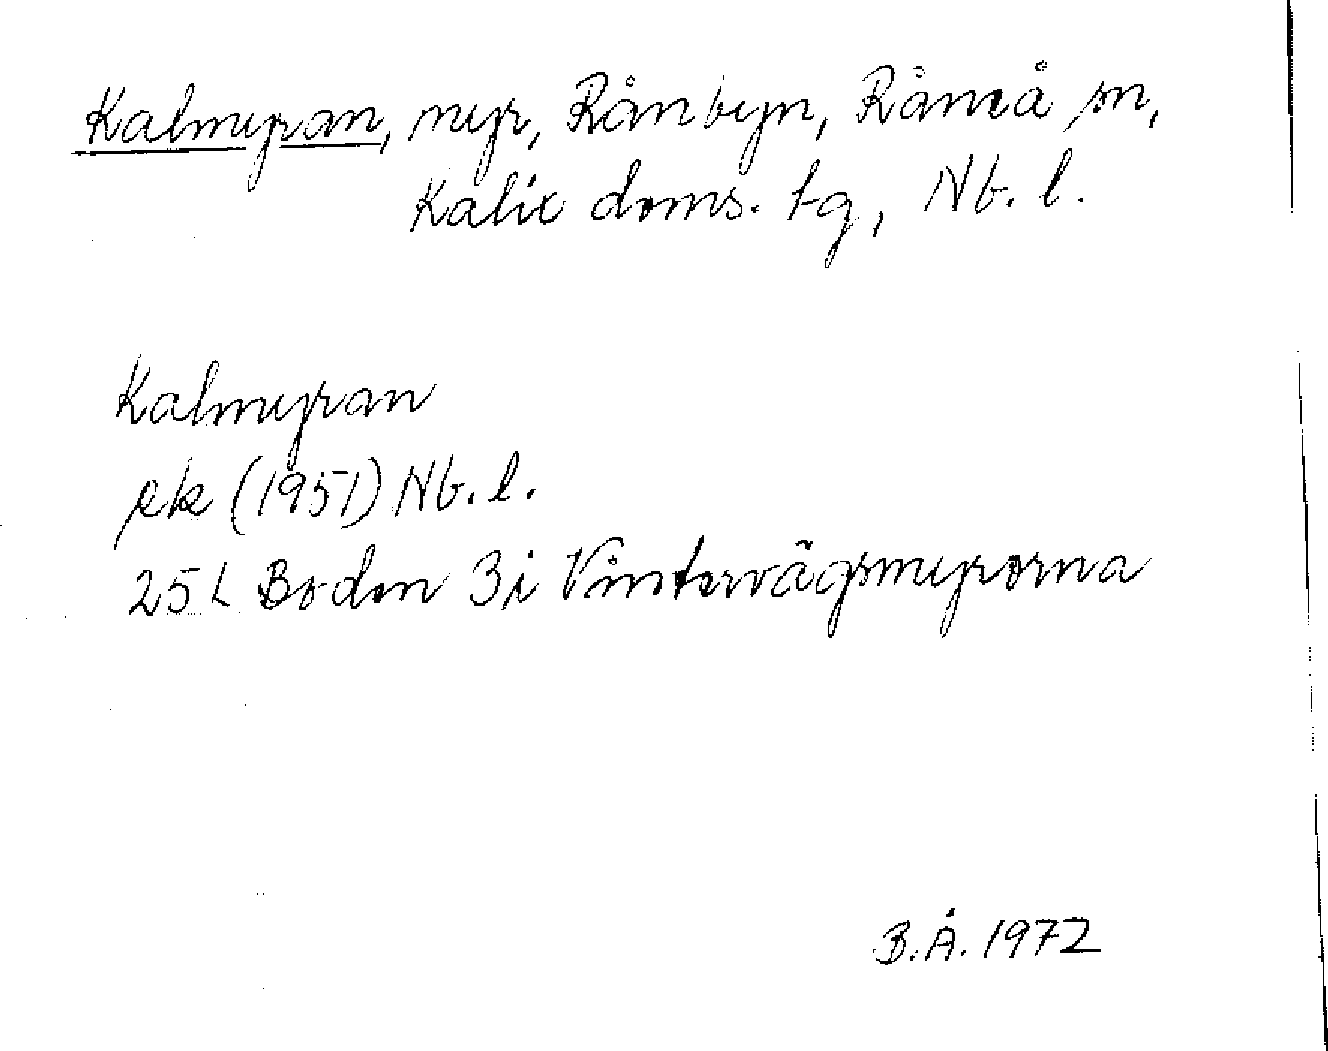 Kalmyran, myr, Rånbyn, Råneå sn,
Kalix doms. tg, Nb. l.
Kalmyran
ek (1951) Nb. l.
25 L Boden 3i Vintervägsmyrorna
B.Å. 1972